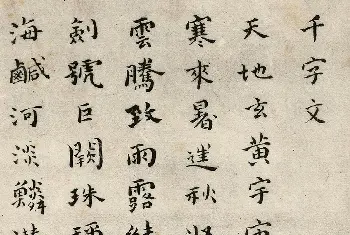 千字文
天地玄黃宇宙
寒來暑往秋收
雲騰致雨露結
劍號巨闕珠稱
海鹹河淡鱗潛